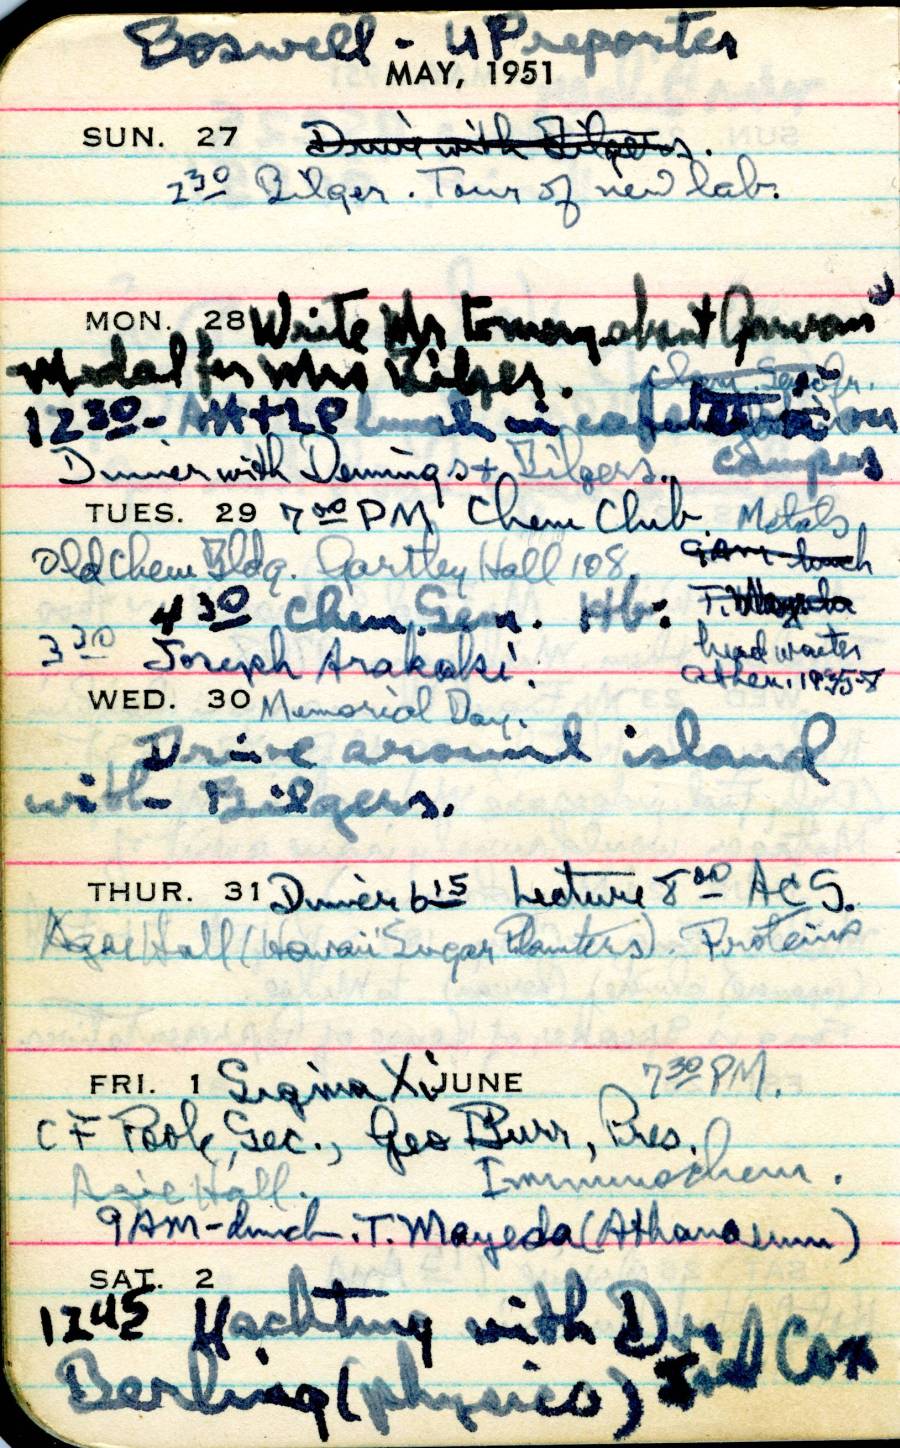 Boswell - UP reporter
MAY, 1951
SUN. 27 Drive with Bilgers.
2 30 Bilger. Tour of new lab.
MON. 28 Write Mr Tomorry about
Medal for Mrs Bilger.
12 30 - AH + LP lunch in cafeteria on
campus
Dinner with Demings + Bilgers.
TUES. 29 7 00 PM Chem Club. Metals
Old Chem Bldg. Gartley Hall 108.
9 AM - lunch
T. Mayeda
4 30 Chem. Sem. Hb:
head waiter
3 30 Joseph Arakaki.
Athen. 1935-8
WED. 30 Memorial Day.
Drive around island
with Bilgers.
THUR. 31 Dinner 6 15 Lecture 8 00 ACS.
Agee Hall (Hawaii Sugar Planters). Proteins
FRI. 1 Sigma Xi JUNE 7 30 PM.
C F Poole, Sec., Geo Burr, Pres.
Agee Hall. Immunochem.
9 AM - lunch. T. Mayeda (Athanaeum)
SAT. 2
12 45 Yachting with Dr
Berling (physics) and Cox